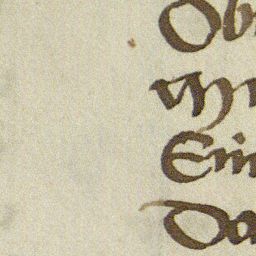 Ob
vn
Ein
Da